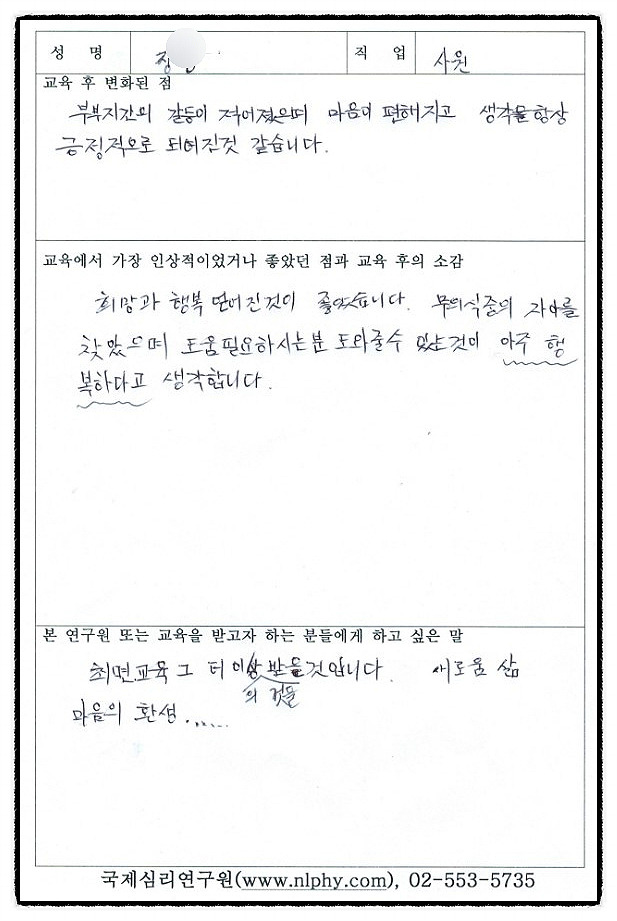 성 명 직 업 사원
교육 후 변화된 점
부부지간의 갈등이 적어졌으며 마음이 편해지고 생각을항상
긍정적으로 되어진것 같습니다.
교육에서 가장 인상적이었거나 좋았던 점과 교육 후의 소감
희망과 행복 얻어진것이 좋았습니다. 무의식중의 자아를
찾았으며 도움필요하시는분 도와줄수 있는것이 아주 행
복하다고 생각합니다.
본 연구원 또는 교육을 받고자 하는 분들에게 하고 싶은 말
최면교육 그 터 이상 받을것입니다. 새로움 삶
의 것들
마음의 환생......
국제심리연구원(www.nlphy.com), 02-553-5735